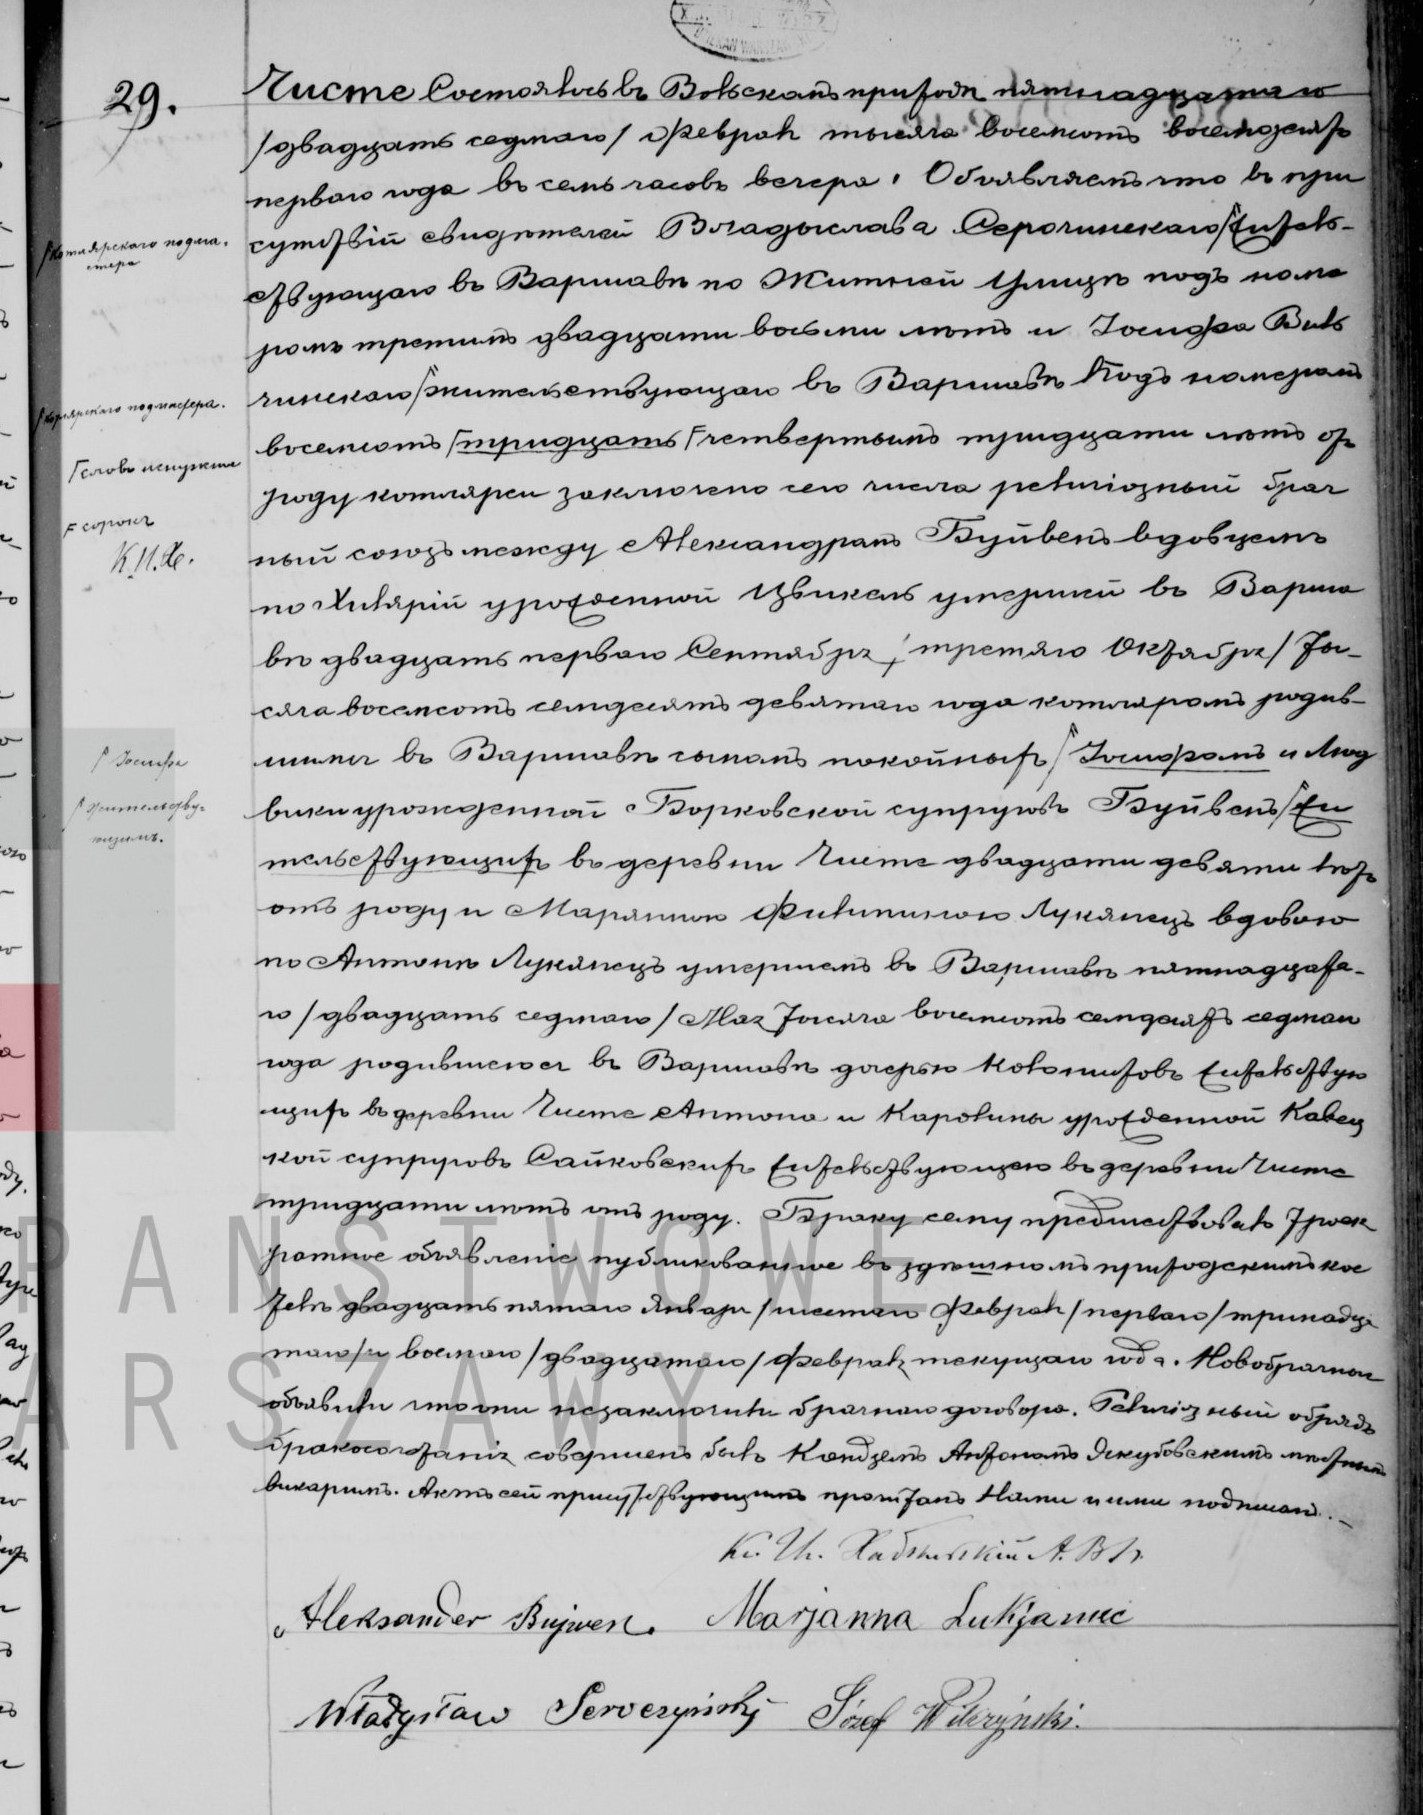 29.
Чисте Состоялось въ Вольскомъ приходѣ пятнадцатаго
/двадцать седмаго/ Февраля тысяча восемсотъ восемдесятъ
перваго года въ семь часовъ вечера. Объявляемъ что въ при
сутствіи свидѣтелей Владыслава Серочинскаго /жительс-
твующаго въ Варшавѣ по Житней Улицѣ подъ номе
ромъ третимъ двадцати восьми лѣтъ и Іосифа Виль
чинскаго /жительствующаго въ Варшавѣ подъ номеромъ
восемсотъ /тридцать/ четвертымъ тридцати лѣтъ отъ
роду котлярси заключено сего числа религіозный брач
ный союзъ между Александромъ Буйвенъ вдовцемъ
по Хилярій урожденной Цвикель умершей въ Варша
вѣ двадцать перваго Сентября / третяго Октября / ты-
сяча восемсотъ семдесятъ девятаго года котляромъ родив-
шимся въ Варшавѣ сыномъ покойныхъ / Іосифомъ и Люд
вики урожденной Борковской супруговъ Буйвенъ /жи
тельствующихъ въ деревни Чисте двадцати девяти лѣтъ
отъ роду и Маріянною Филипиною Лукянецъ вдовою
по Антонѣ Лукянецъ умершемъ въ Варшавѣ пятнадцата-
го /двадцать седмаго/ Мая тысяча восемсотъ семдесятъ седмаго
года родившеюся въ Варшавѣ дочерью Колонистовъ жительству
щихъ въ деревни Чисте Антона и Каролины урожденной Кавец
кой супруговъ Сайковскихъ жительствующею въ деревни Чисте
тридцати лѣтъ отъ роду. Браку сему предшествовало троек
ратное объявленіе публикованное въ здѣшномъ приходскимъ кос
телѣ двадцать пятаго Января /шестаго Февраля/ перваго /тринадца
таго/ и восмаго /двадцатаго/ Февраля текущаго года. Новобрачные
объявили что они незаключили брачнаго договора. Религіозный обрядъ
бракосочетанія совершенъ былъ Ксендземъ Антономъ Якубовскимъ мѣстнымъ
викаримъ. Актъ сей присутствующимъ прочтанъ Нами и ими подписанъ.
/Котлярскаго подма-
стера
/Котлярскаго подмастера.
/словъ ненужне
F сорокъ
К.И.Х.
/ Іосифа
/ жительству-
ющимъ.
Aleksander Bujwen. Marjanna Lukjaniec
Władysław Seroczyński Józef Wilczyński.
PAŃSTWOWE
ARSZAWY